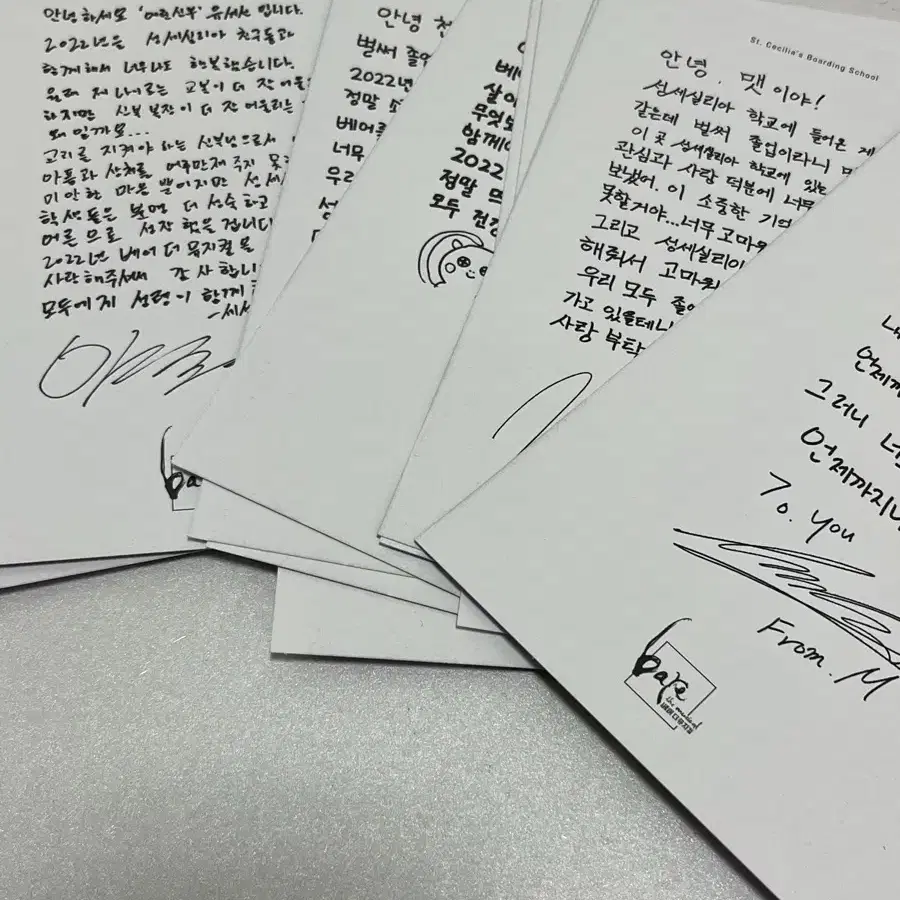 안녕하세요 '어른신부' 유세
2022년은 성세실리아 친구들과
함께해서 너무나도 행복했습니다.
원래 제 나이로는 교복이 더 잘 어울
하지만 신부복장이 더 잘 어울리는
왜 일까요...
교리를 지켜야 하는 신부님으로서
아픔과 상처를 어루만져 주지 못
미안한 마음 뿐이지만 성세
학생들은 분명 더 성숙하고
어른으로 성장했을겁니다
2022년 베어 더 뮤지컬을
사랑해주셔서 감사합니
모두에게 성령이 함께
bare
안녕
벌써 졸업
2022년
정말 소
베어
너무
우리
베어
살아
무엇보
함께
2022
정말 뜨
모두 건강
St. Cecilia's Boarding School
안녕. 맷이야!
성세실리아 학교에 들어온 게
같은데 벌써 졸업이라니
이 곳 성세실리아 학교에 있는
관심과 사랑 덕분에 너무
보냈어. 이 소중한 기억
못할거야...너무 고마워
그리고 성세실리아
해줘서 고마워
우리 모두 졸업
가고 있을테니
사랑 부탁
언제까
그러니 너
언제까지나
To. you
From. M
bare
the musical
베어 더 뮤지컬